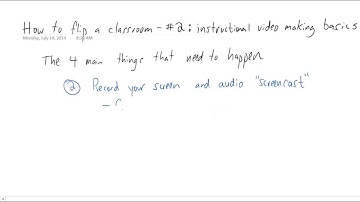 How to flip a classroom - #2: instructional video making basics
Monday, July 14, 2014 8:20 AM
The 4 main things that need to happen
② Record your screen and audio "screencast"
-